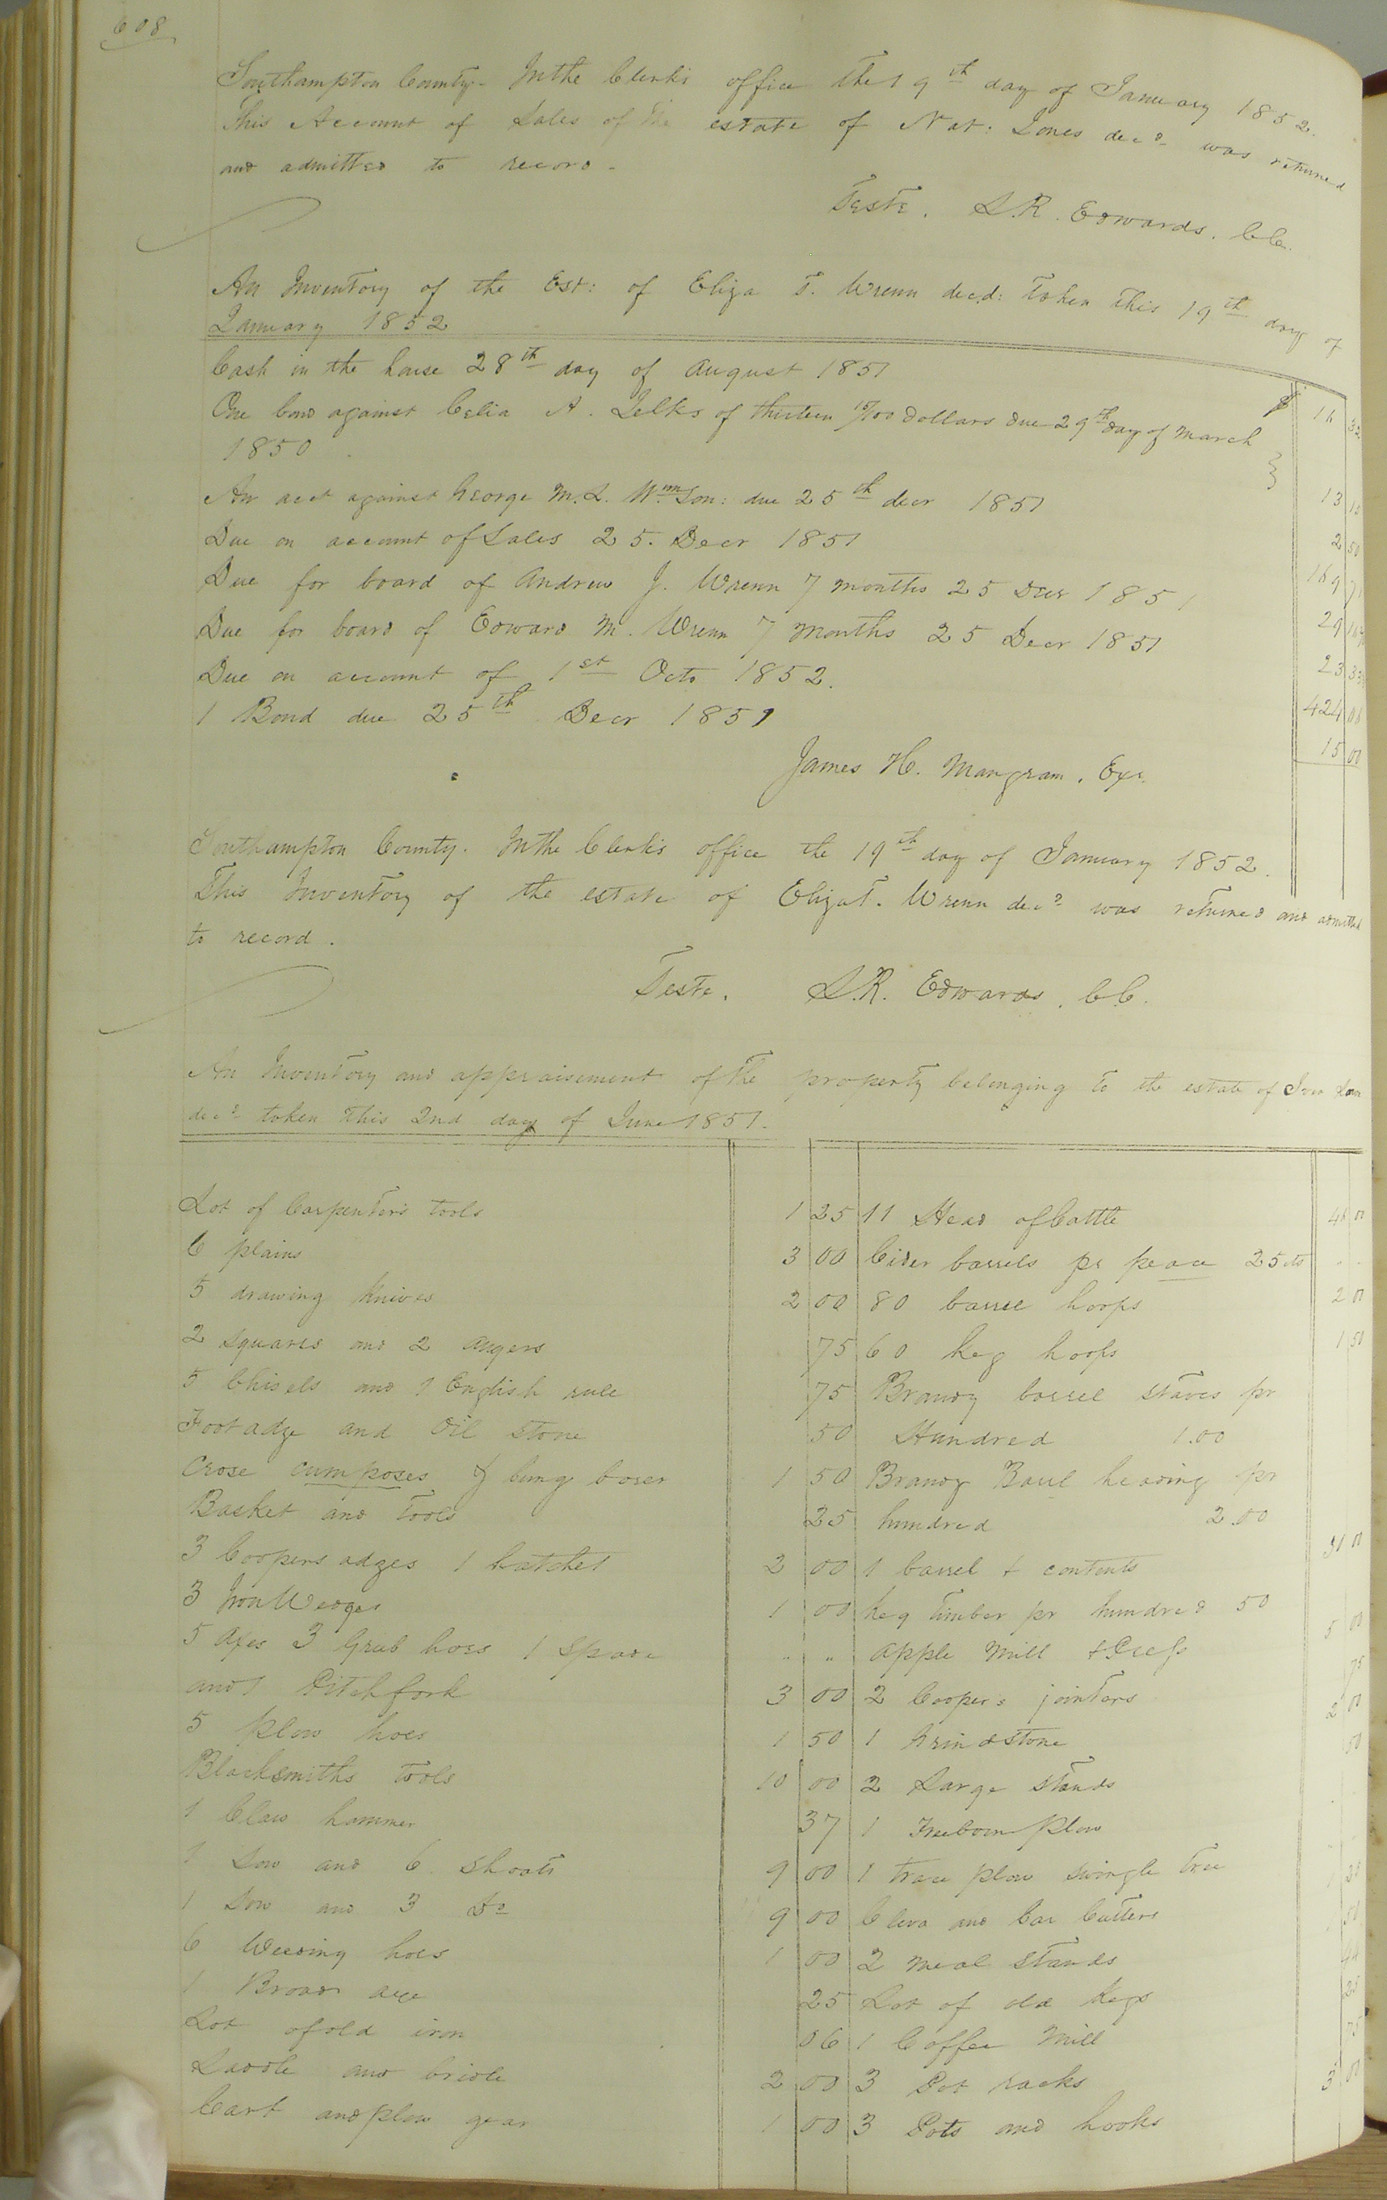 608
Southampton County. In the Clerk's office the 19th day of January 1852.
This Account of Sales of the estate of Nat: Jones decd. was returned
and admitted to record.
Teste. L.R. Edwards. CC.
An Inventory of the Est: of Eliza T. Wrenn decd: taken this 19th day of
January 1852
Cash in the house 28th day of August 1851 $ 16
One bond against Celia A. Jelks of thirteen 15/100 Dollars due 29th day of March
1850 13 15
An acct against George M.L. Wmson: due 25th decr 1851 2 50
Due on account of Sales 25. Decr 1851 169 71
Due for board of Andrew J. Wrenn 7 months 25 Decr 1851 29
Due for board of Edward M. Wrenn 7 months 25 Decr 1851 23 33
Due on account of 1st Octo 1852. 424 08
1 Bond due 25th Decr 1851 15 00
James H. Mangram. Exr.
Southampton County. In the Clerk's office the 19th day of January 1852.
This Inventory of the estate of Eliza T. Wrenn decd was returned and admitted
to record.
Teste. L.R. Edwards. CC.
An Inventory and appraisement of the property belonging to the estate of
decd taken this 2nd day of June 1851.
Lot of Carpenters tools 1 25 11 Head of Cattle 48 00
6 plains 3 00 Cider barrels pr peace 25 cts
5 drawing knives 2 00 80 barrel hoops 2 00
2 squares and 2 augers 75 60 keg hoops 1 50
5 Chisels and 1 English rule 75 Brandy barrel staves pr
Foot adze and Oil stone 50 Hundred 1.00
Crose cumposes & bung borer 1 50 Brandy Barrel heading pr
Basket and tools 25 hundred 2.00
3 Coopers adzes 1 hatchet 2 00 1 barrel & contents 31 00
3 Iron Wedges 1 00 keg timber pr hundred 50
5 Axes 3 Grub hoes 1 Spade " " apple Mill & Press 5 00
and 1 Pitchfork 3 00 2 Coopers jointers 75
5 plow hoes 1 50 1 Grindstone 2 00
Blacksmiths tools 10 00 2 Large stands 50
1 Claw hammer 37 1 Freeborn Plow
1 Sow and 6 Shoats 9 00 1 trace plow swingle tree
1 Sow and 3 Do 9 00 Cleva and Car Cutters
6 Weeding hoes 1 00 2 meal stands
1 Broad axe 25 Lot of old kegs 25
Lot of old iron 06 1 Coffee Mill 75
Saddle and bridle 2 00 3 Pot racks 3 00
Cart and plow gear 1 00 3 Pots and hooks